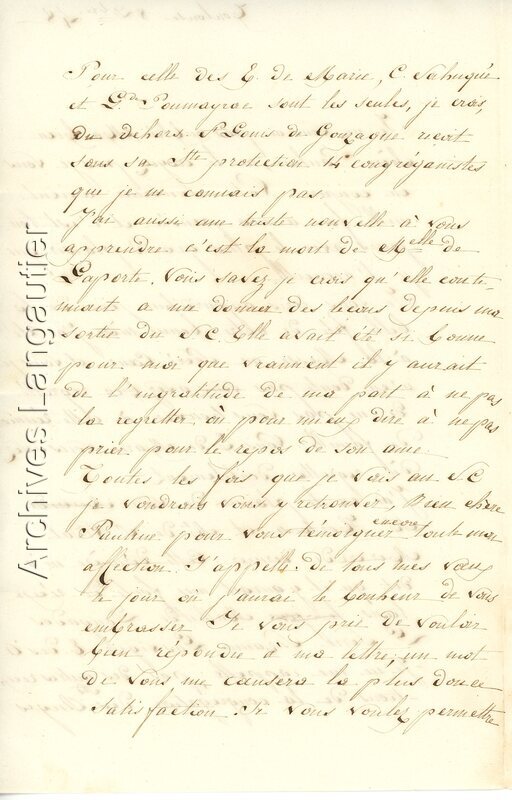 Pour celle des E. de Marie, C. Sahuquié
et G.de Poumayrac sont les seules, je crois,
du dehors. St Louis de Gonzague reçoit
sous sa Ste protection 14 congréganistes
que je ne connais pas.
J'ai aussi une triste nouvelle à vous
apprendre c'est la mort de Melle de
Laporte. Vous savez je crois qu'elle conti-
nuait a me donner des leçons depuis ma
sortie du S C. Elle avait été si bonne
pour moi que vraiment il y aurait
de l'ingratitude de ma part à ne pas
la regretter, où pour mieux dire à ne pas
prier pour le repos de son âme.
Toutes les fois que je vais au S C
je voudrais vous y retrouver, bien chère
Pauline pour vous témoigner encore toute mon
affection. J'appelle de tous mes vœux
le jour où j'aurai le bonheur de vous
embrasser. Je vous prie de vouloir
bien répondre à ma lettre, un mot
de vous me causera la plus douce
satisfaction. Si vous voulez permettre
Archives Langautier